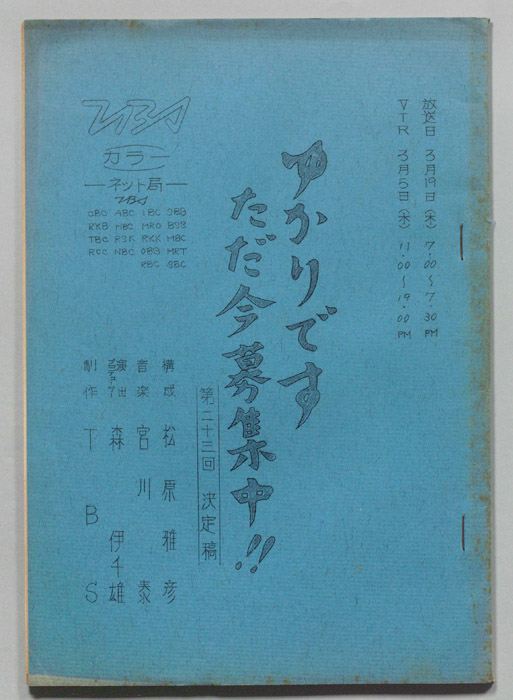 放送日 3月19日(木) 7.00〜7.30PM
VTR 3月5日(木) 11.00〜19.00PM
ゆかりです
ただ今募集中!!
第二十三回 決定稿
カラー
―ネット局―
RKB HBC MRO BSB
TBC RSK RKK MBC
RCC NBC OBS MRT
RBC SBC
構成 松原雅彦
音楽 宮川泰
演出 森伊千雄
制作 TBS